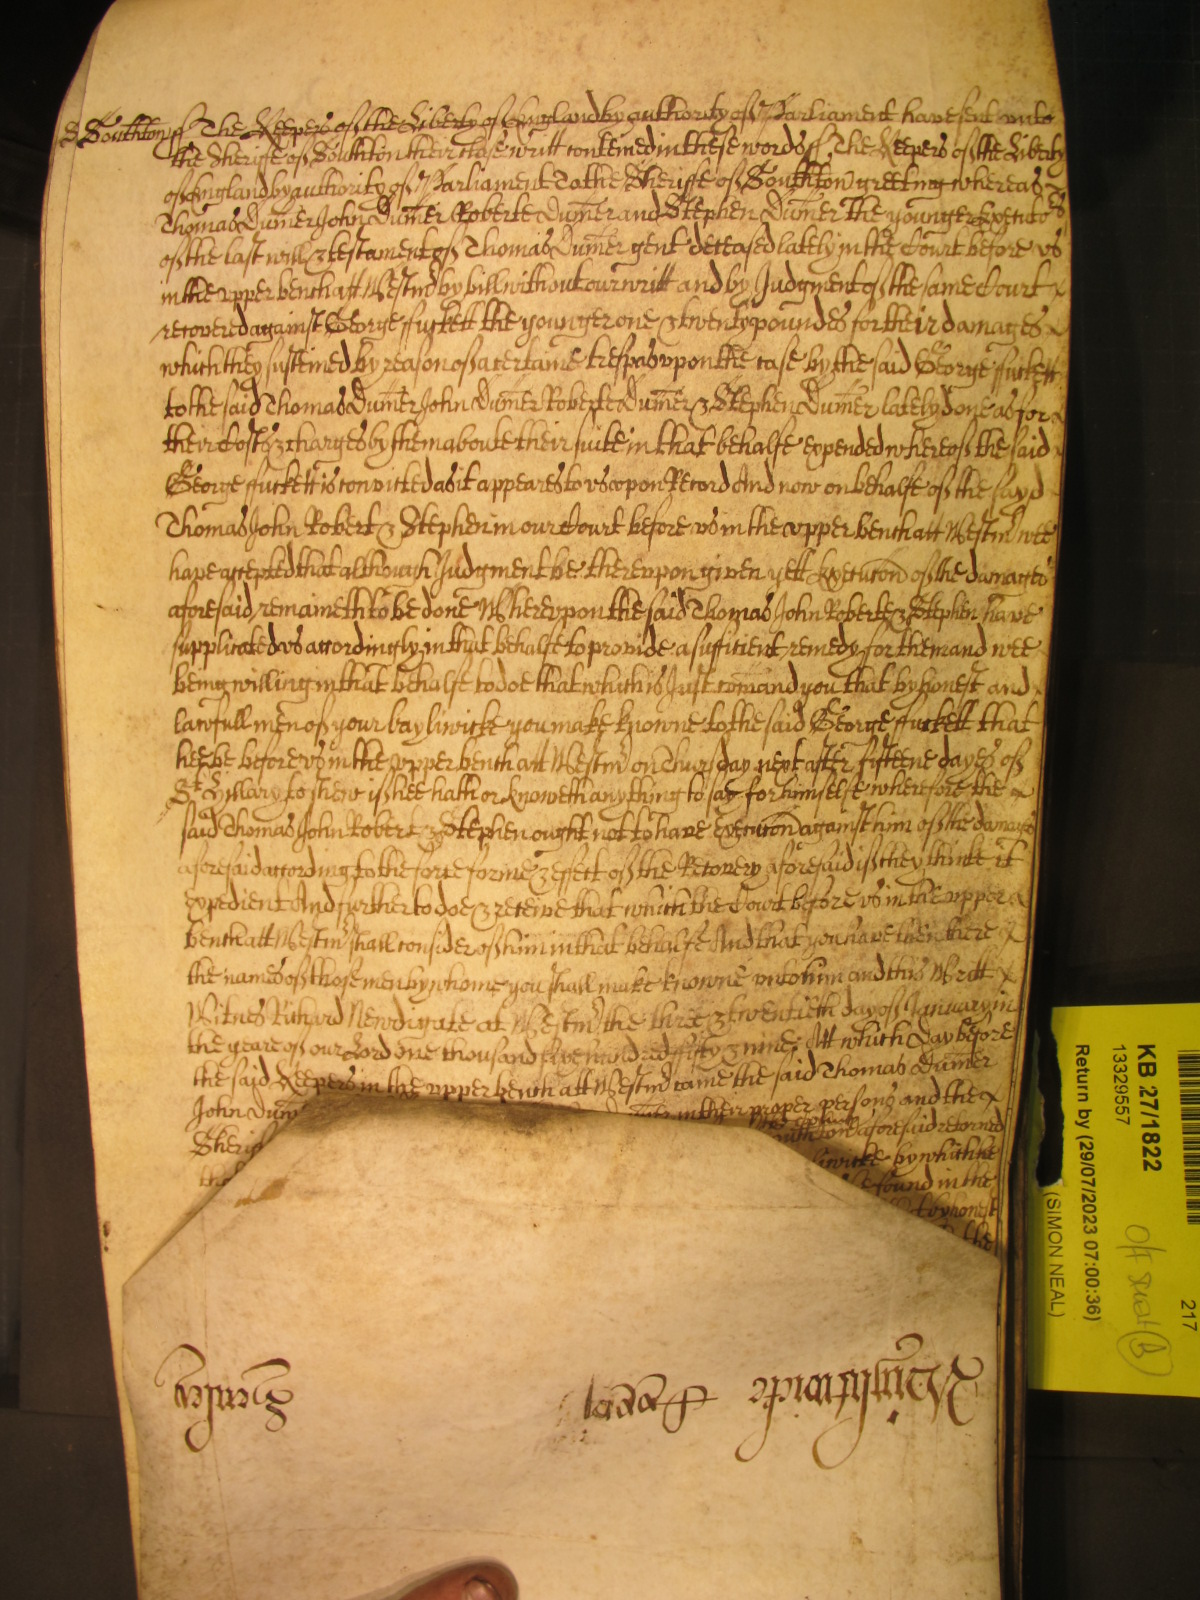 Southton ss The Keepers of the Liberty of England by authority of Parliament have sent unto
the Sheriffe of Southton their close writt conteined in these words ss The Keepers of the Liberty
of England by authority of Parliament To the Sheriffe of Southton greeting whereas
Thomas Dumer John Dumer Roberte Dumer and Stephen Dumer the younger Executors
of the last will & testament of Thomas Dumer gent deceased lately in the Court before us
in the upper bench att Westmr by bill without our writt and by Judgment of the same Court
recovered against George ffuckett the younger one & twenty poundes for their damages
which they susteined by reason of a certaine trespas upon the case by the said George ffuckett
to the said Thomas Dumer John Dumer Roberte Dumer & Stephen Dumer lately done as for
their Costs & charges by them aboute their suite in that behalfe expended whereof the said
George ffuckett is convicted as it appeares to us upon Record And now on behalfe of the sayd
Thomas John Robert & Stephen in our Court before us in the upper bench att Westmr wee
have accepted that although Judgment be thereupon given yett Execucon of the damages
aforesaid remaineth to be done Whereupon the said Thomas John Roberte & Stephen have
supplicated us accordingly in that behalfe to provide a sufficient remedy for them and wee
being willing in that behalfe to doe that which is Just comand you that by honest and
lawfull men of your bayliwicke you make knowne to the said George ffuckett that
hee be before us in the upper bench att Westmr on Thursday next after fifteene dayes of
St Hillary to shew if hee hath or knoweth any thing to say for himselfe wherefore the
said Thomas John Robert & Stephen ought not to have Execucon against him of the damages
aforesaid according to the force forme & effect of the Recovery aforesaid if they thinke it
expedient And further to doe & receive that which the Court before us in the upper
bench att Westmr shall consider of him in that behalfe And that you have then there
the names of those men by whome you shall make knowne unto him and this Writt
Witnes Richard Newdigate at Westmr the three & twentieth day of January in
the yeare of our Lord one thousand six hundred fifty & nine Att which Day before
the said Keepers in the upper bench att Westmr came the said Thomas Dumer
John Dum in their proper persons and the
Sherif Southton aforesaid returned
the liwicke by which he
be found in the
t by honest
the
KB 27/1822
13329557
Return by (29/07/2023 07:00:36)
(SIMON NEAL)
217